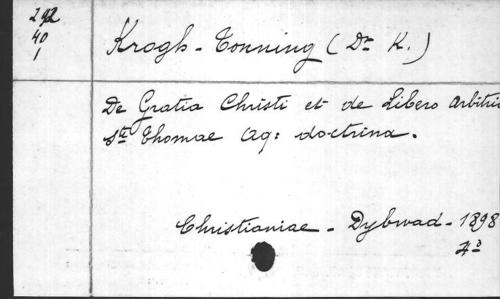 292
40
1
Krogh-Tonning (Dr K.)
De Gratia Christi et de Libero Arbitrio
Sti Thomae Aq: doctrina.
Christianiae - Dybwad - 1898